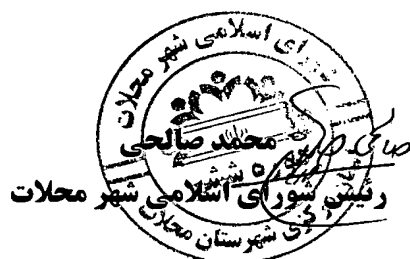 شورای اسلامی شهر محلات
محمد صالحی
رئیس شورای اسلامی شهر محلات
مرکزی شهرستان محلات